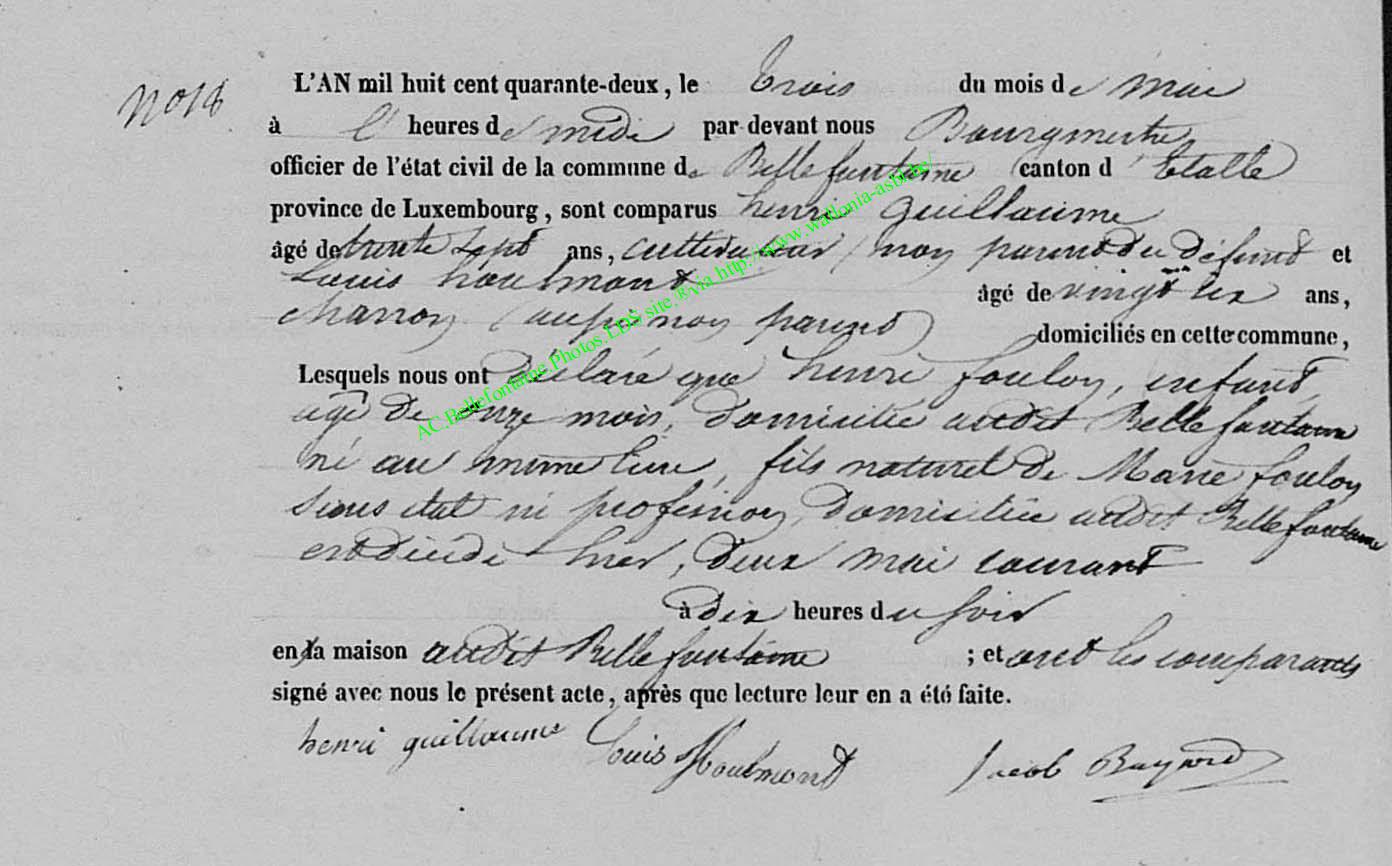 No 18
L'AN mil huit cent quarante-deux, le trois du mois de mai
à l' heures de midi par devant nous Bourgmestre
officier de l'état civil de la commune de Bellefontaine canton d'Etalle
province de Luxembourg, sont comparus henri guillaume
âgé de trente sept ans, cultivateur (non parent du défunt et
Louis houlmont âgé de vingt six ans,
charron (aussi non parent) domiciliés en cette commune,
Lesquels nous ont déclaré que henri fouloy, enfant,
agé de onze mois, domicilié audit Bellefontaine
né au même lieu, fils naturel de Marie fouloy
sans état ni profession, domiciliée audit Bellefontaine
est décédé hier, deux mai courant
à dix heures du soir
en sa maison audit Bellefontaine ; et ont les comparants
signé avec nous le présent acte, après que lecture leur en a été faite.
henri guillaume Louis Houlmont Jacob Bayard
AC.Bellefontaine.Photos.LDS site.®via http://www.wallonia-asbl.be/